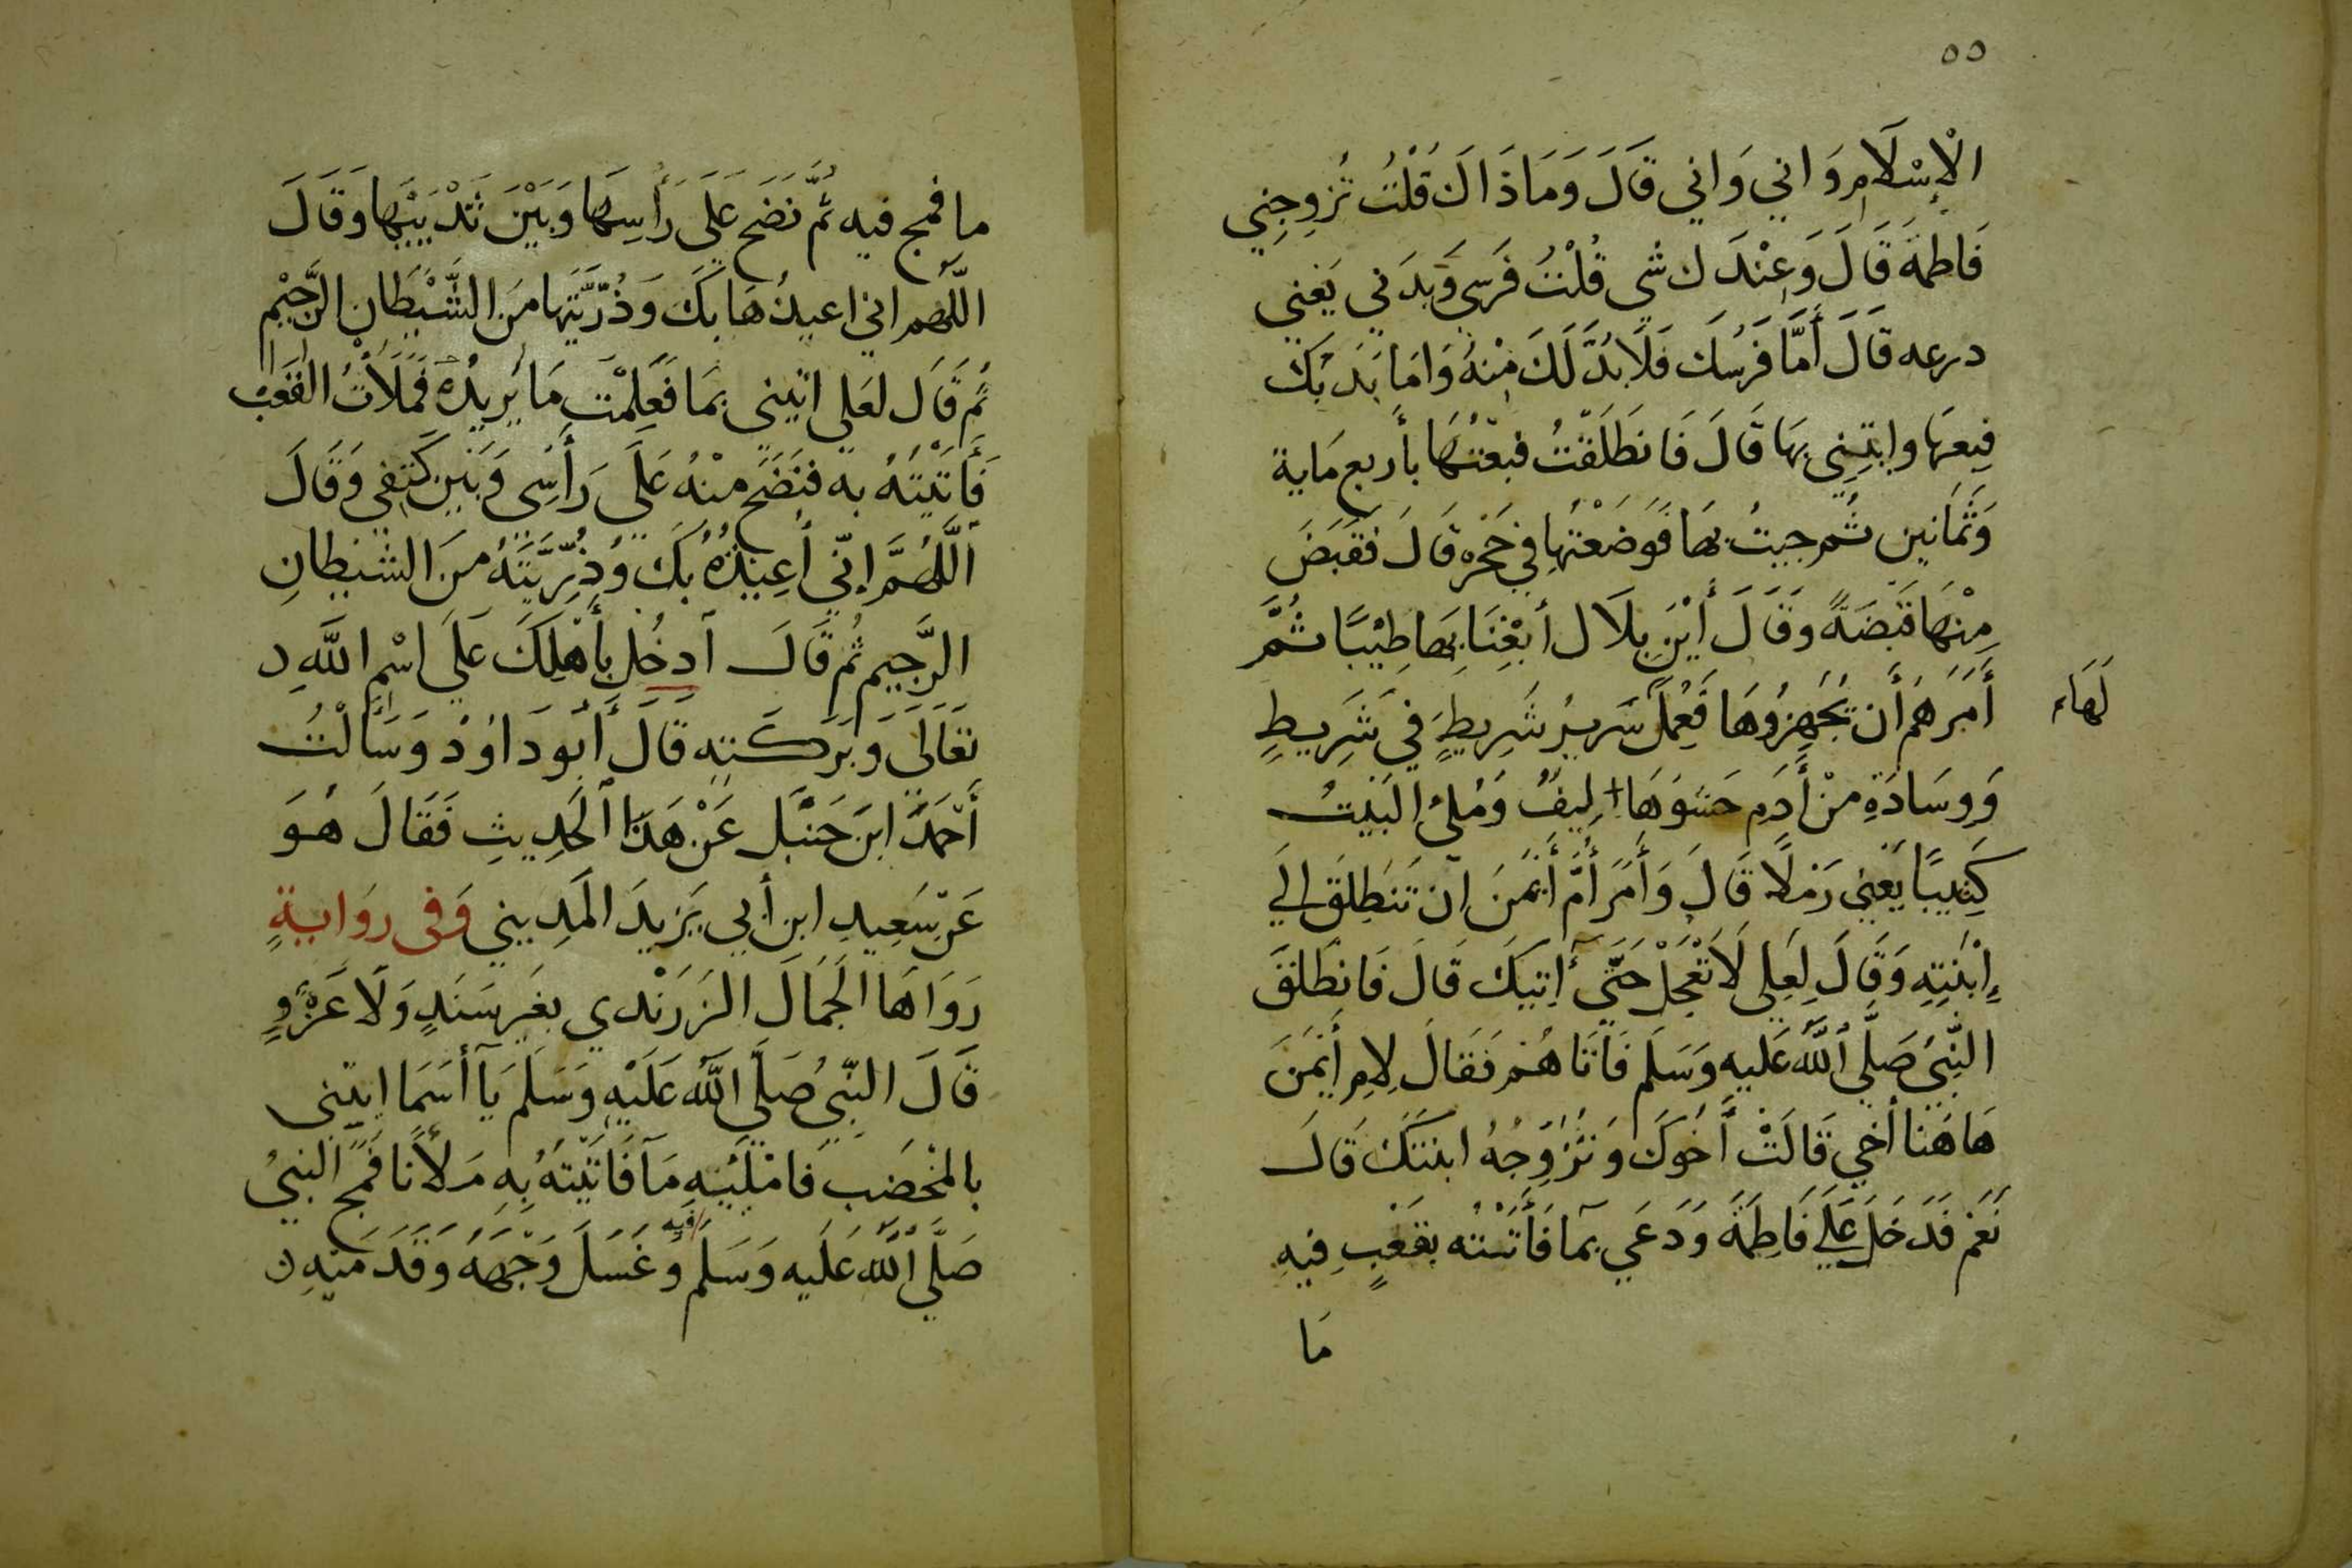 ٥٥
الْإِسْلَامِ وَاني وَاني قَالَ وَمَا ذَاكَ قُلْتُ تُزوِجِني
فَاطمةَ قَالَ وَعِنْدَك شي قُلْتُ فَرَسِي وَبَدَني يَعْني
درعه قَالَ أَمَّا فَرَسُكَ فَلَابُدَّ لَكَ مِنْهُ وَامَا بَدَنُكَ
فبِعهَا وايتِنِي بهَا قَالَ فَانطَلَقْتُ فبِعْتُهَا بأربع مَاية
وَثَمَانين ثُم جيتُ بهَا فَوَضَعْتُهَا فِي حَجْره قَالَ فقَبَضَ
مِنْهَا قَبْضَةً وَقَالَ أَيْنَ بِلَال أبغِنَا بِهَا طِيْبًا ثُمَّ
أَمَرَهُم أَن يُجَهِزُوهَا فَعُمِلَ سَرِيرُ شَرِيطٍ في شَرِيطٍ
لَهَا
وَوِسَادَةٍ مِنْ أَدَم حَشوهَا لِيفٌ وَمُلئ البَيْتُ
كَثِيبًا يَعْني رَمْلًا قَالَ وَأَمَرَ أُمَّ أَيْمَنَ ان تَنطَلِقَ الي
إِبْنَتِهِ وَقَالَ لِعَلِي لَا تَعْجَلْ حَتَّي آتِيَكَ قَالَ فَانطَلَقَ
النَّبِيُ صَلَّي اللَّهُ عَليه وَسَلَم فَأتَاهُم فَقَالَ لِامِ أَيْمَنَ
هَاهُنا أخي قَالَتْ أَخُوكَ وَتُزَوِجُهُ ابنتَكَ قَالَ
نَعَم فَدَخَلَ عَلَي فَاطِمَةَ وَدَعَي بمآ فَأَتَتْه بقَعْبٍ فِيهِ
مَا
ما فمج فيه ثُمَّ نَضَحَ عَلَي رَأسِهَا وَبَيْنَ ثَدْيَيْهَا وَقَالَ
اللَّهم اني اعيذُهَا بكَ وَذُرِّيَّتَهَا مِنَ الشَّيْطَانِ الرَّجِيْم
ثُم قَالَ لعَلي ايتِني بمَا فَعَلِمْتُ مَا يُرِيدُهُ فَمَلَأْتُ القَعْبَ
فَأَتَيْتُهُ به فنَضَحَ منْهُ عَلَى رَأسِي وَبَيْن كَتِفي وَقَالَ
اَللَّهُمَّ إنّي أُعِيْذُهُ بكَ وَذُرِّيَّتَهُ مِنَ الشيطانِ
الرَّجِيم ثُم قَالَ اَدخُل بِأَهْلِكَ عَلَي اسْمِ اللَّهِ
تعَالَي وَبَرَكَتِه قَالَ أَبُو دَاوُدْ وَسَأَلْتُ
أَحْمَدَ ابنَ حَنْبَلٍ عَنْ هَذَا اَلحَدِيثِ فَقَالَ هُوَ
عَنْ سَعِيدِ ابن أَبي يَزيدَ المَدِيني وَفي روَايةٍ
رَوَاهَا الجَمَالُ الزَرَنْدي بغَير سَنَدٍ وَلَا عَزْوٍ
قَالَ النَّبِي صَلَّي اللَّهُ عَلَيْهِ وَسَلَم يَآ أَسمَا ايتِني
بالمخْضَب فَامْلَيْتِهِ مَآ فَأَتَيْتُهُ بِهِ مَلْأَنًا فَمج النبيُ
صَلَّي اللَّهُ عَلَيه وَسَلَم فيه وَغَسَلَ وَجْهَهُ وَقَدَمَيْهِ